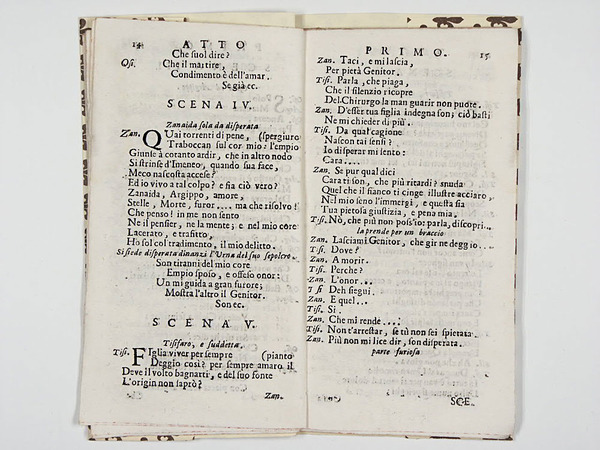 14 ATTO
Che suol dire?
Osi. Che il martire,
Condimento è dell'amar.
Segià ec.
SCENA IV.
Zanaida sola da disperata
Zan. Quai torrenti di pene, (spergiuro
Traboccan sul cor mio: l'empio
Giunse à cotanto ardir, che in altro nodo
Si strinse d'Imeneo, quando sua face,
Meco nascosta accese?
Ed io vivo a tal colpo? e fia ciò vero?
Zanaida, Argippo, amore,
Stelle, Morte, furor.... ma che risolvo!
Che penso! in me non sento
Ne il pensier, ne la mente; e nel mio core
Lacerato, e trafitto,
Ho sol co'l tradimento, il mio delitto.
Si siede disperata dinanzi l'Urna del suo sepolcro.
Son tiranni del mio core
Empio sposo, e offeso onor:
Un mi guida a gran furore;
Mostra l'altro il Genitor.
Son ec.
SCENA V.
Tisifaro, e suddetta.
Tisi. Figlia viver per sempre (pianto
Deggio così? per sempre amaro il
Deve il volto bagnarti, e del suo fonte
L'origin non saprò?
Zan.
PRIMO. 15
Zan. Taci, e mi lascia,
Per pietà Genitor.
Tisi. Parla, che piaga,
Che il silenzio ricopre
Del Chirurgo la man guarir non puote.
Zan. D'esser tua figlia indegna son; ciò basti
Ne mi chieder di più.
Tisi. Da qual cagione
Nascon tai sensi?
Io disperar mi sento:
Cara....
Zan. Se pur qual dici
Cara ti son, che più ritardi? snuda
Quel che il fianco ti cinge illustre acciaro,
Nel mio seno l'immergi, e questa sia
Tua pietosa giustizia, e pena mia.
Tisi. Nò, che più non poss'io: parla, discopri...
la prende per un braccio
Zan. Lasciami Genitor, che gir ne deggio...
Tisi. Dove?
Zan. A morir.
Tisi. Perche?
Zan. L'onor...
Tisi Deh siegui.
Zan. E quel...
Tisi. Si.
Zan. Che mi rende....
Tisi. Non t'arrestar, se tù non sei spietata.
Zan. Più non mi lice dir, son disperata.
parte furiosa
SCE.